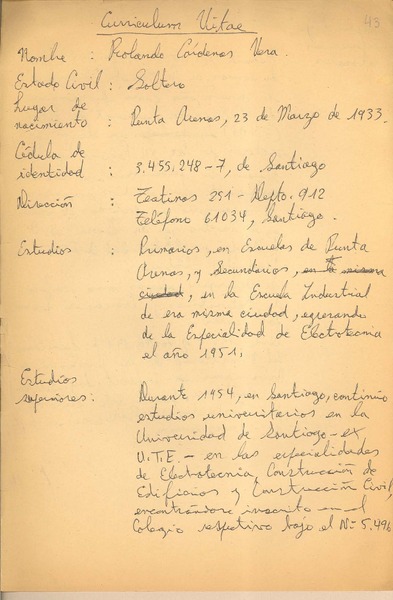 43
Curriculum Vitae
Nombre : Rolando Cárdenas Vera.
Estado Civil : Soltero
Lugar de
nacimiento : Punta Arenas, 23 de Marzo de 1933.
Cédula de
identidad : 3.455.248-7, de Santiago
Dirección : Teatinos 251 - Depto. 912
Teléfono 61034, Santiago.
Estudios : Primarios, en Escuelas de Punta
Arenas, y Secundarios, en la misma
ciudad, en la Escuela Industrial
de esa misma ciudad, egresando
de la Especialidad de Electrotecnia
el año 1951.
Estudios
superiores : Durante 1954, en Santiago, continúo
estudios universitarios en la
Universidad de Santiago - ex
U.T.E. - en las especialidades
de Electrotecnia, Construcción de
Edificios y Construcción Civil,
encontrándose inscrito en el
Colegio respectivo bajo el Nº 5.496